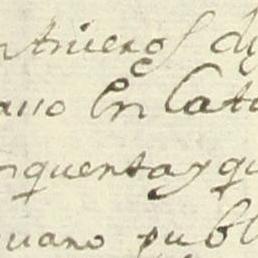 ntrueros di
ano En Cato
nquenta y qu
uano publ